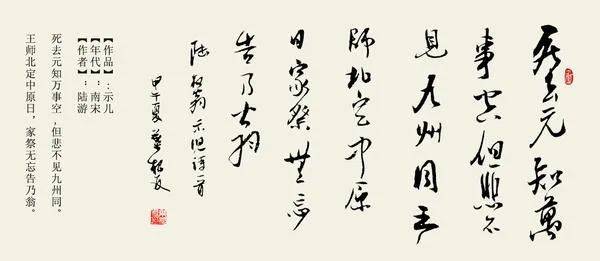 死去元知萬
事空但悲不
見九州同王
師北定中原
日家祭無忘
告乃翁
陸放翁示兒詩一首
甲午夏
【作品】:示儿
【年代】:南宋
【作者】:陆游
死去元知万事空,但悲不见九州同。
王师北定中原日,家祭无忘告乃翁。